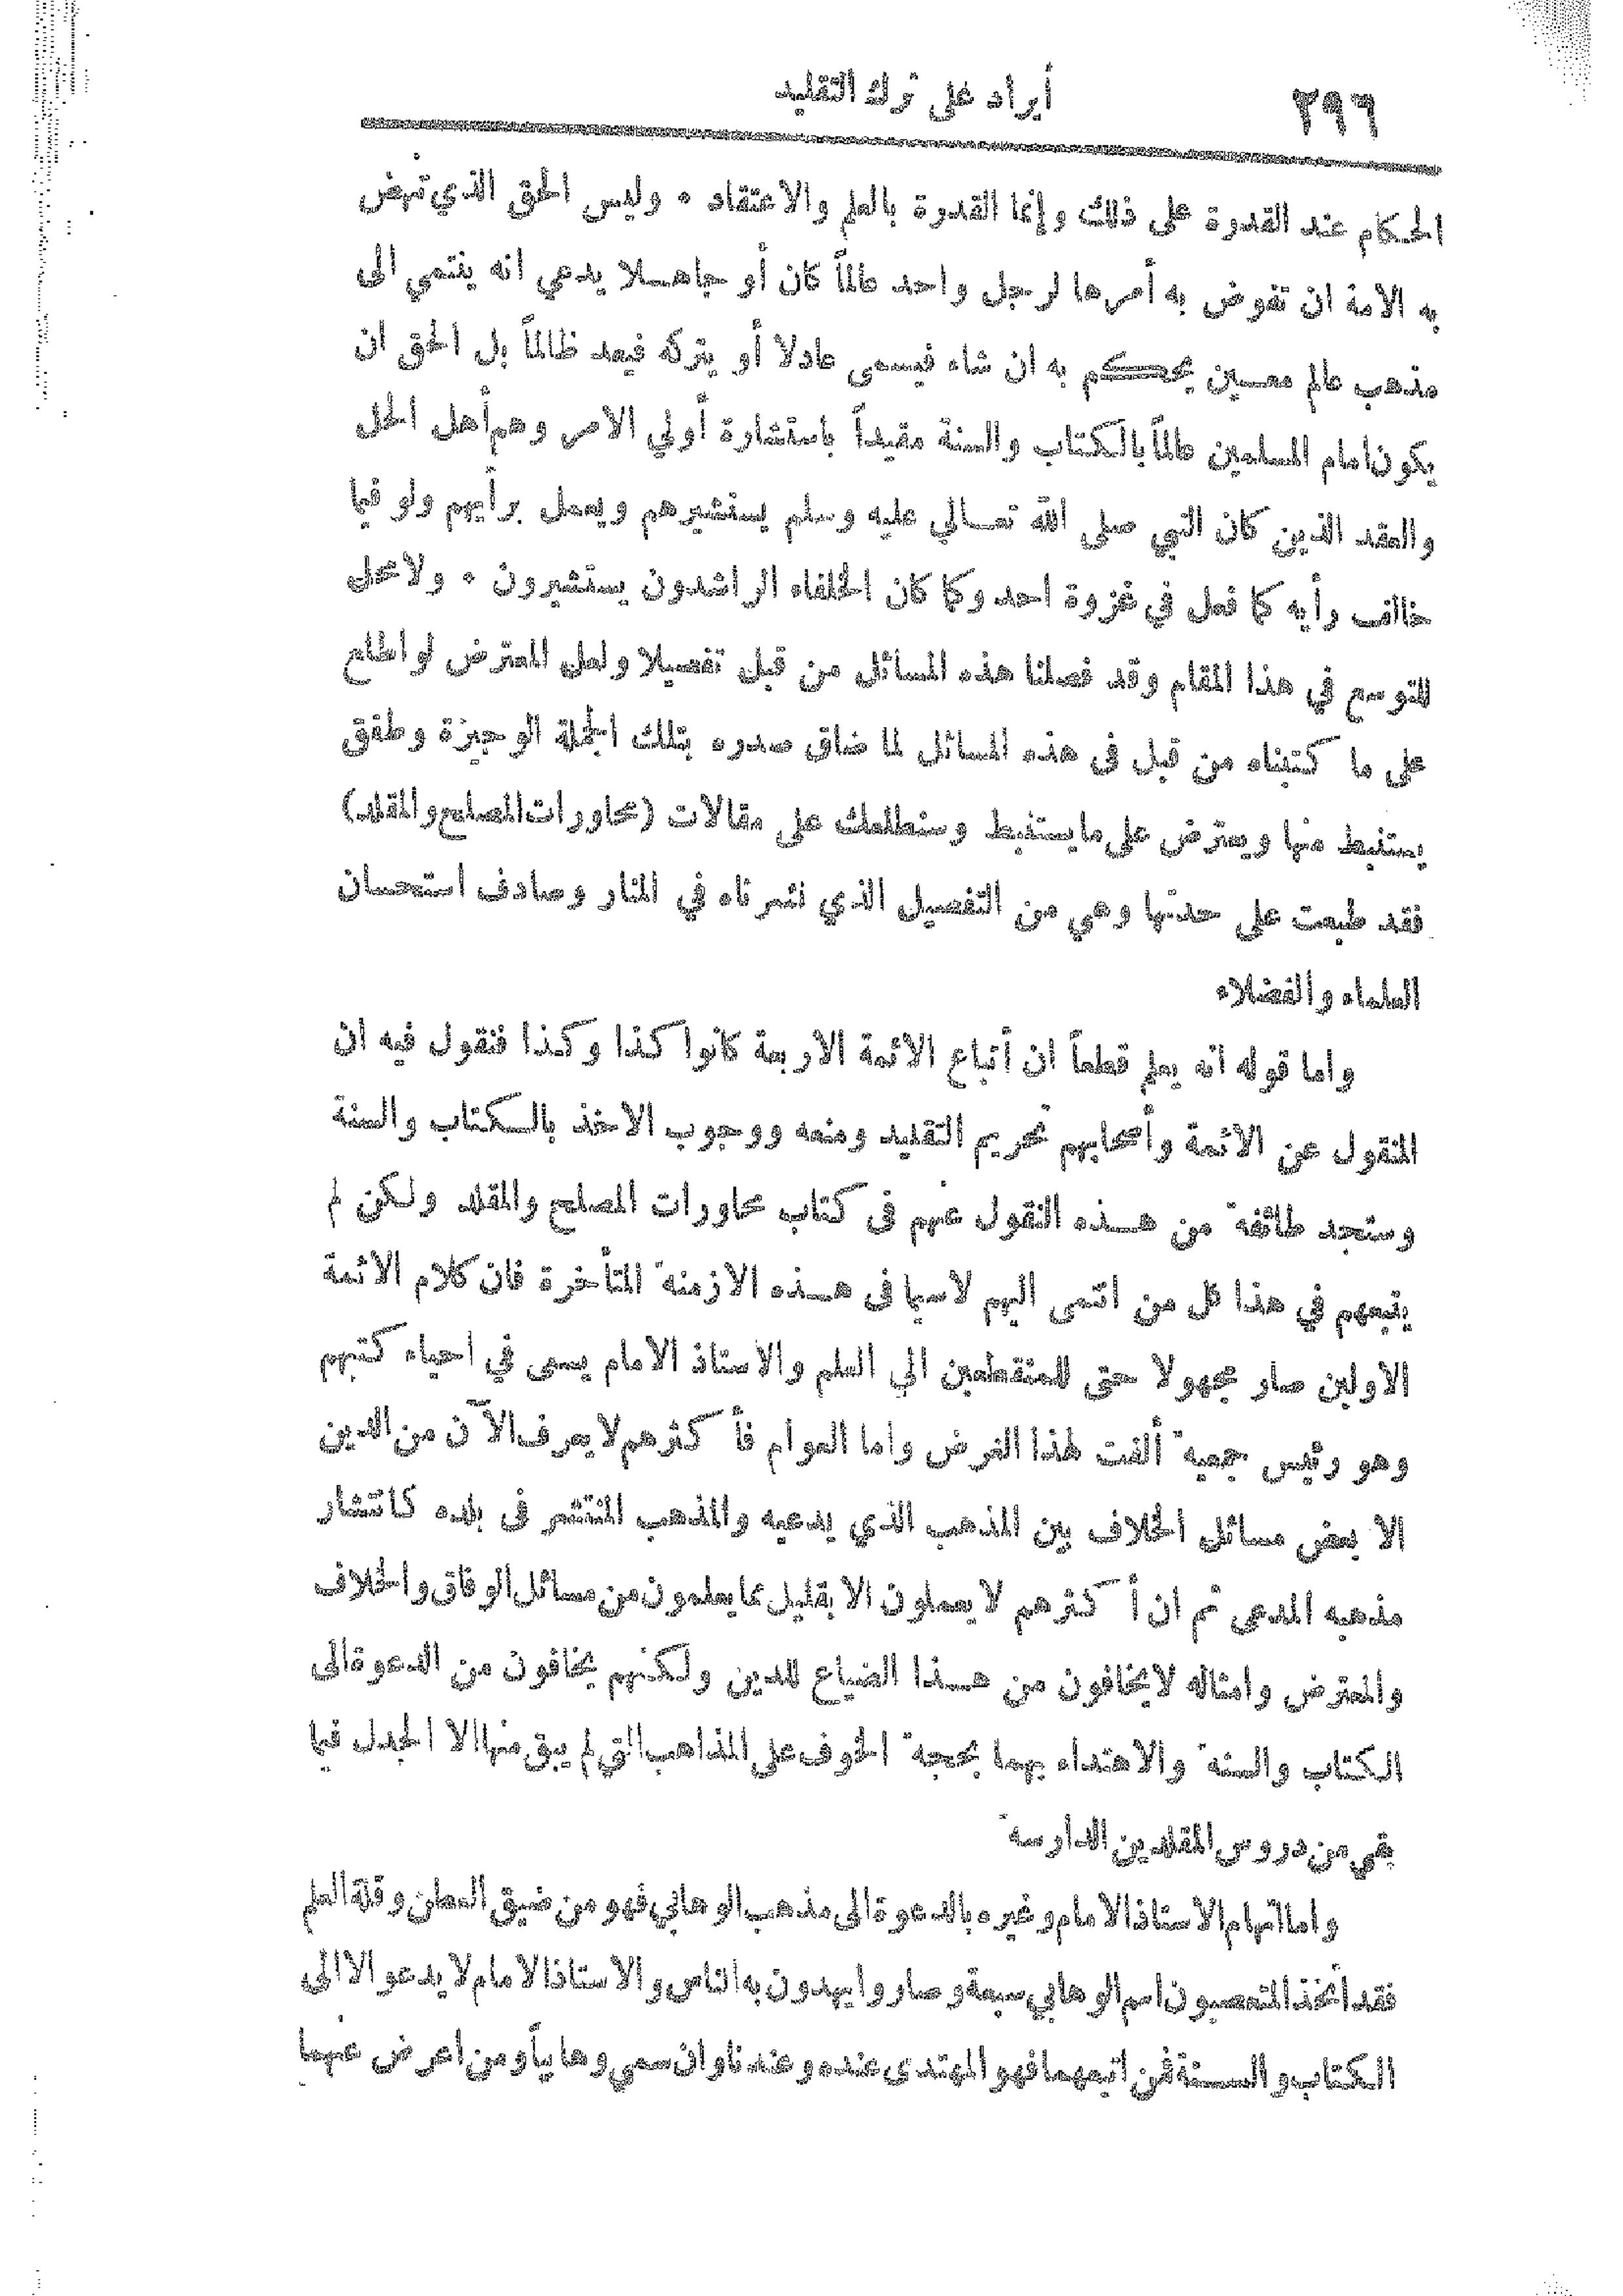 ٢٩٦
أيراد على ترك التقليد
الحكام عند القدرة على ذلك وإنما القدرة بالعلم والاعتقاد . وليس الحق الذي تنهض
به الامة ان تفوض به أمرها لرجل واحد عالماً كان أو جاهلا يدعي انه ينتمي الى
مذهب عالم معين يحكم به ان شاء فيسمى عادلا أو يتركه فيعد ظالماً بل الحق ان
يكون امام المسلمين عالماً بالكتاب والسنة مقيداً باستشارة أولي الامر وهم أهل الحل
والعقد الذين كان النبي صلى الله تعالي عليه وسلم يستشيرهم ويعمل برأيهم ولو فيما
خالف رأيه كما فعل في غزوة احد وكما كان الخلفاء الراشدون يستشيرون . ولا محل
للتوسع في هذا المقام وقد فصلنا هذه المسائل من قبل تفصيلا ولعل المعترض لو اطلع
على ما كتبناه من قبل فى هذه المسائل لما ضاق صدره بتلك الجملة الوجيزة وطفق
يستنبط منها ويعترض على ما يستنبط وسنطلعك على مقالات (محاورات المصلح والمقلد)
فقد طبعت على حدتها وهي من التفصيل الذي نشرناه في المنار وصادف استحسان
العلماء والفضلاء
واما قوله انه يعلم قطعاً ان أتباع الائمة الاربعة كانوا كذا وكذا فنقول فيه ان
المنقول عن الائمة وأصحابهم تحريم التقليد ومنعه ووجوب الاخذ بالكتاب والسنة
وستجد طائفة من هذه النقول عنهم فى كتاب محاورات المصلح والمقلد ولكن لم
يتبعهم في هذا كل من انتمى اليهم لاسيما فى هذه الازمنة المتأخرة فان كلام الائمة
الاولين صار مجهولا حتى للمنقطعين الي العلم والاستاذ الامام يسعى في احياء كتبهم
وهو رئيس جمعية ألفت لهذا الغرض واما العوام فأكثرهم لا يعرف الآن من الدين
الا بعض مسائل الخلاف بين المذهب الذي يدعيه والمذهب المنتشر فى بلده كانتشار
مذهبه المدعى ثم ان أكثرهم لا يعملون الا بقليل مما يعلمون من مسائل الوفاق والخلاف
والمعترض وامثاله لا يخافون من هذا الضياع للدين ولكنهم يخافون من الدعوة الى
الكتاب والسنة والاهتداء بهما بحجة الخوف على المذاهب التي لم يبق منها الا الجدل فيما
بقي من دروس المقلدين الدارسة
واما اتهام الاستاذ الامام وغيره بالدعوة الى مذهب الوهابي فهو من ضيق العطن وقلة العلم
فقد أتخذ المتعصبون اسم الوهابي سبعة وصاروا يهددون به الناس والاستاذ الامام لا يدعو الا الى
الكتاب والسنة فمن اتبعهما فهو المهتدى عنده وعندنا وان سمي وهابياً ومن اعرض عنهما